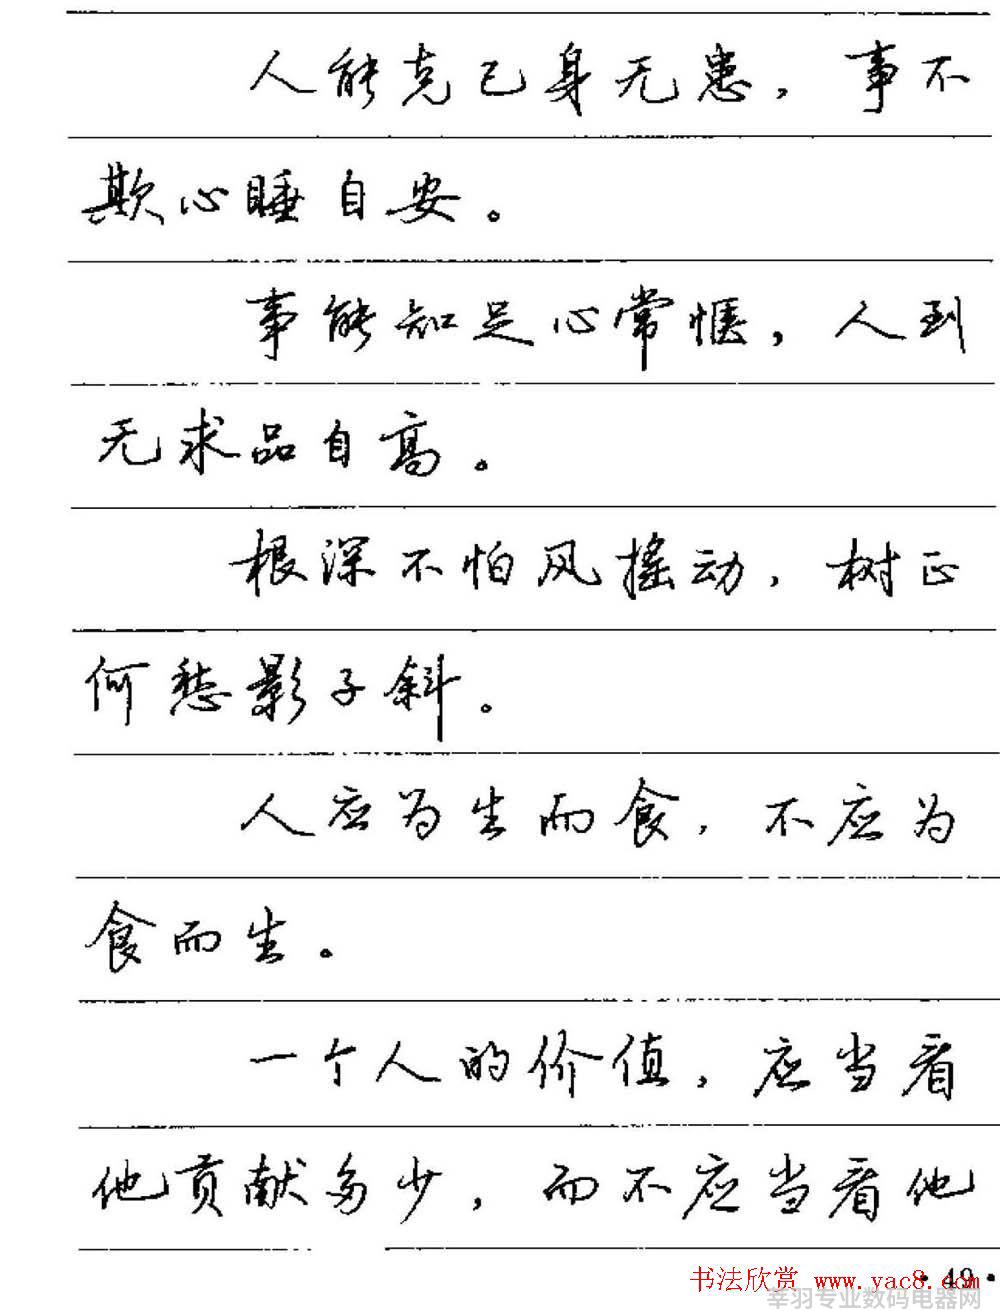 人能克己身无患，事不
欺心睡自安。
事能知足心常惬，人到
无求品自高。
根深不怕风摇动，树正
何愁影子斜。
人应为生而食，不应为
食而生。
一个人的价值，应当看
他贡献多少，而不应当看他
·49·
书法欣赏 www.yac8.com
莘羽专业数码电器网